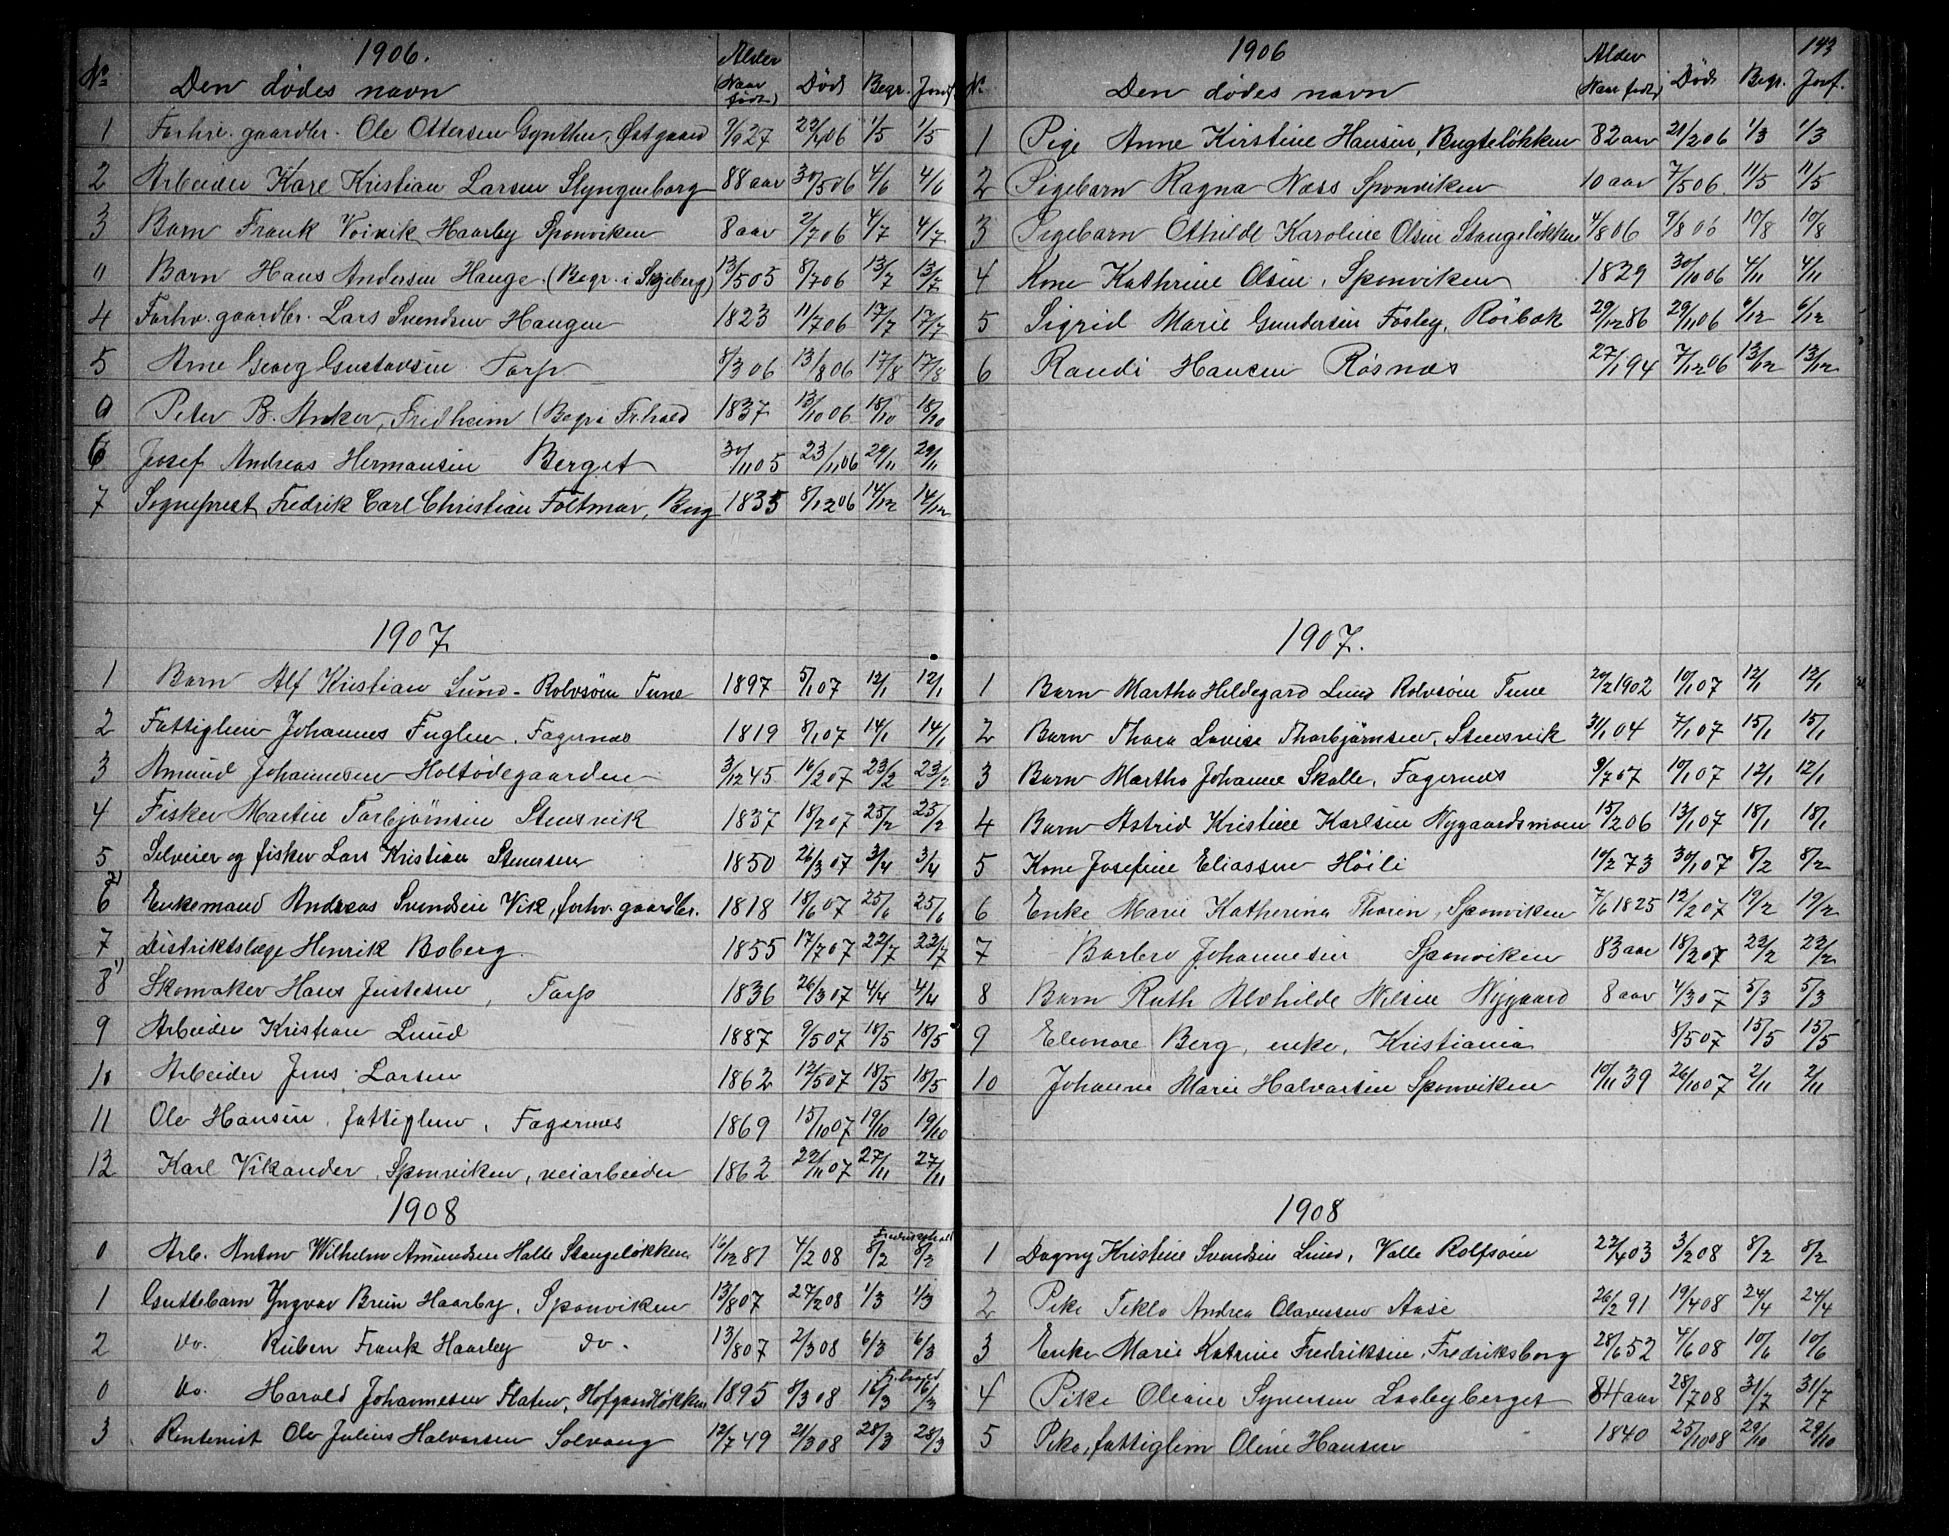 1906.
No Den dødes navn Alder (Naar født) Død Begr. Jordf.
1 Forhv. gaardbr. Ole Ottersen Gynther, Østgaard 9/9 27 23/4 06 1/5 1/5
2 Arbeider Karl Kristian Larsen Slyngueborg 88 aar 30/5 06 4/6 4/6
3 Barn Frank Voivik Haarby Sponviken 8 aar 2/7 06 4/7 4/7
" Barn Hans Andersen Hauge. (Begr. i Skjeberg) 13/5 05 8/7 06 13/7 13/7
4 Forhv. gaardbr. Lars Svendsen Haugen 1823 11/7 06 17/7 17/7
5 Arne Georg Gustavsen Torp 8/3 06 13/8 06 17/8 17/8
0 Peter B. Anker, Fredheim (Begr i Fr.hald 1837 13/10 06 18/10 18/10
6 Josef Andreas Hermansen Berget 30/11 05 23/11 06 29/11 29/11
7 Sogneprest Fredrik Carl Christian Foltmar, Berg 1835 8/12 06 14/12 14/12
1907
1 Barn Alf Kristian Lund - Rolvsøen Tune 1897 5/1 07 12/1 12/1
2 Fattiglem Johannes Fuglen, Fagernes 1819 8/1 07 14/1 14/1
3 Amund Johannesen Holtødegaarden 3/12 45 16/2 07 23/2 23/2
4 Fisker Martin Torbjørnsen Stensvik 1837 18/2 07 25/2 25/2
5 Selveier og fisker Lars Kristian Stenersen 1850 26/3 07 3/4 3/4
6 Enkemand Andreas Svendsen Vik, forhv. gaardbr. 1818 18/6 07 25/6 25/6
7 Distriktslæge Henrik Boberg 1855 17/7 07 22/7 22/7
8 Skomaker Hans Justesen, Torp 1836 26/3 07 4/4 4/4
9 Arbeider Kristian Lund 1887 9/5 07 18/5 18/5
10 Arbeider Jens Larsen 1862 12/5 07 18/5 18/5
11 Ole Hansen, fattiglem, Fagernes 1869 15/10 07 19/10 19/10
12 Karl Vikander, Sponviken, veiarbeider 1862 22/11 07 27/11 27/11
1908
Fredrikshald
0 Arb. Anton Wilhelm Amundsen Halle Stangeløkken 16/12 87 4/2 08 8/2 8/2
1 Guttebarn Yngvar Brein Haarby, Sponviken 13/8 07 27/2 08 1/3 1/3
2 do. Ruben Frank Haarby do. 13/8 07 2/3 08 6/3 6/3
Fr.hald
0 do. Harald Johannesen Flaten, Hofgaardløkken 1895 8/3 08 16/3 16/3
3 Rentenist Ole Julius Halvorsen Solvang 12/7 49 21/3 08 28/3 28/3
143
1906
No Den dødes navn Alder (Naar født) Død Begr. Jordf.
1 Pige Anne Kirstine Hansen, Bugteløkken 82 aar 21/2 06 1/3 1/3
2 Pigebarn Ragna Næss Sponviken 10 aar 7/5 06. 11/5 11/5
3 Pigebarn Othilde Karoline Olsen Stangeløkken 4/8 06 9/8 06 10/8 10/8
4 Kone Kathrine Olsen, Sponviken 1829 30/10 06 4/11 4/11
5 Sigrid Marie Gundersen Fosby, Røibæk 29/12 86 29/11 06 6/12 6/12
6 Randi Hansen Røsnæs 27/1 94 7/12 06 13/12 13/12
1907.
1 Barn Martha Hildegard Lund Rolvsøen Tune 20/2 1902 10/1 07 12/1 12/1
2 Barn Thora Lovise Thorbjørnsen, Stensvik 31/1 04 7/1 07 15/1 15/1
3 Barn Martha Johanne Skolle, Fagernes 9/7 07 10/1 07 12/1 12/1
4 Barn Astrid Kristine Karlsen Nygaardsmoen 15/2 06 13/1 07 18/1 18/1
5 Kone Josefine Eliassen Høili 10/2 73 30/1 07 8/2 8/2
6 Enke Marie Katherina Thorin, Sponviken 7/6 1825 12/2 07 19/2 19/2
7 Barbro Johannesen Sponviken 83 aar 18/2 07 23/2 23/2
8 Barn Ruth Alvhilde Nilsen Nygaard 8 aar 4/3 07 5/3 5/3
9 Eleonore Berg, enke, Kristiania 8/5 07 15/5 15/5
10 Johanne Marie Halvorsen Sponviken 10/11 39 26/10 07 2/11 2/11
1908
1 Dagny Kristine Svendsen Lund, Valle Rolfsøen 22/4 03 3/2 08 8/2 8/2
2 Pike Tekla Andrea Olavesen Aase 26/2 91 19/4 08 24/4 24/4
3 Enke Marie Katrine Fredriksen, Fredriksborg 28/6 52 4/6 08 10/6 10/6
4 Pike Oleane Synersen Laabyberget 84 aar 28/7 08 31/7 31/7
5 Pike, fattiglem Oline Hansen 1840 25/10 08 29/10 29/10